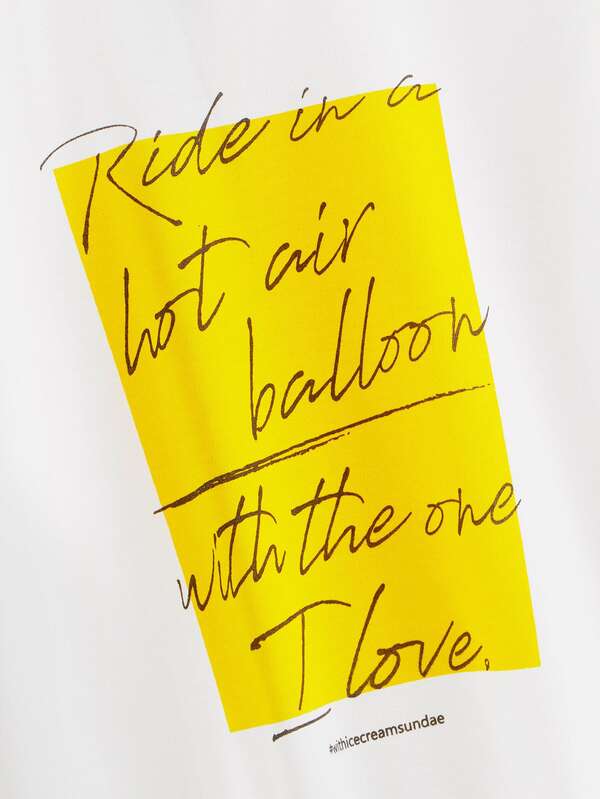 Ride in a
hot air
balloon
with the one
I love.
#withicecreamsundae